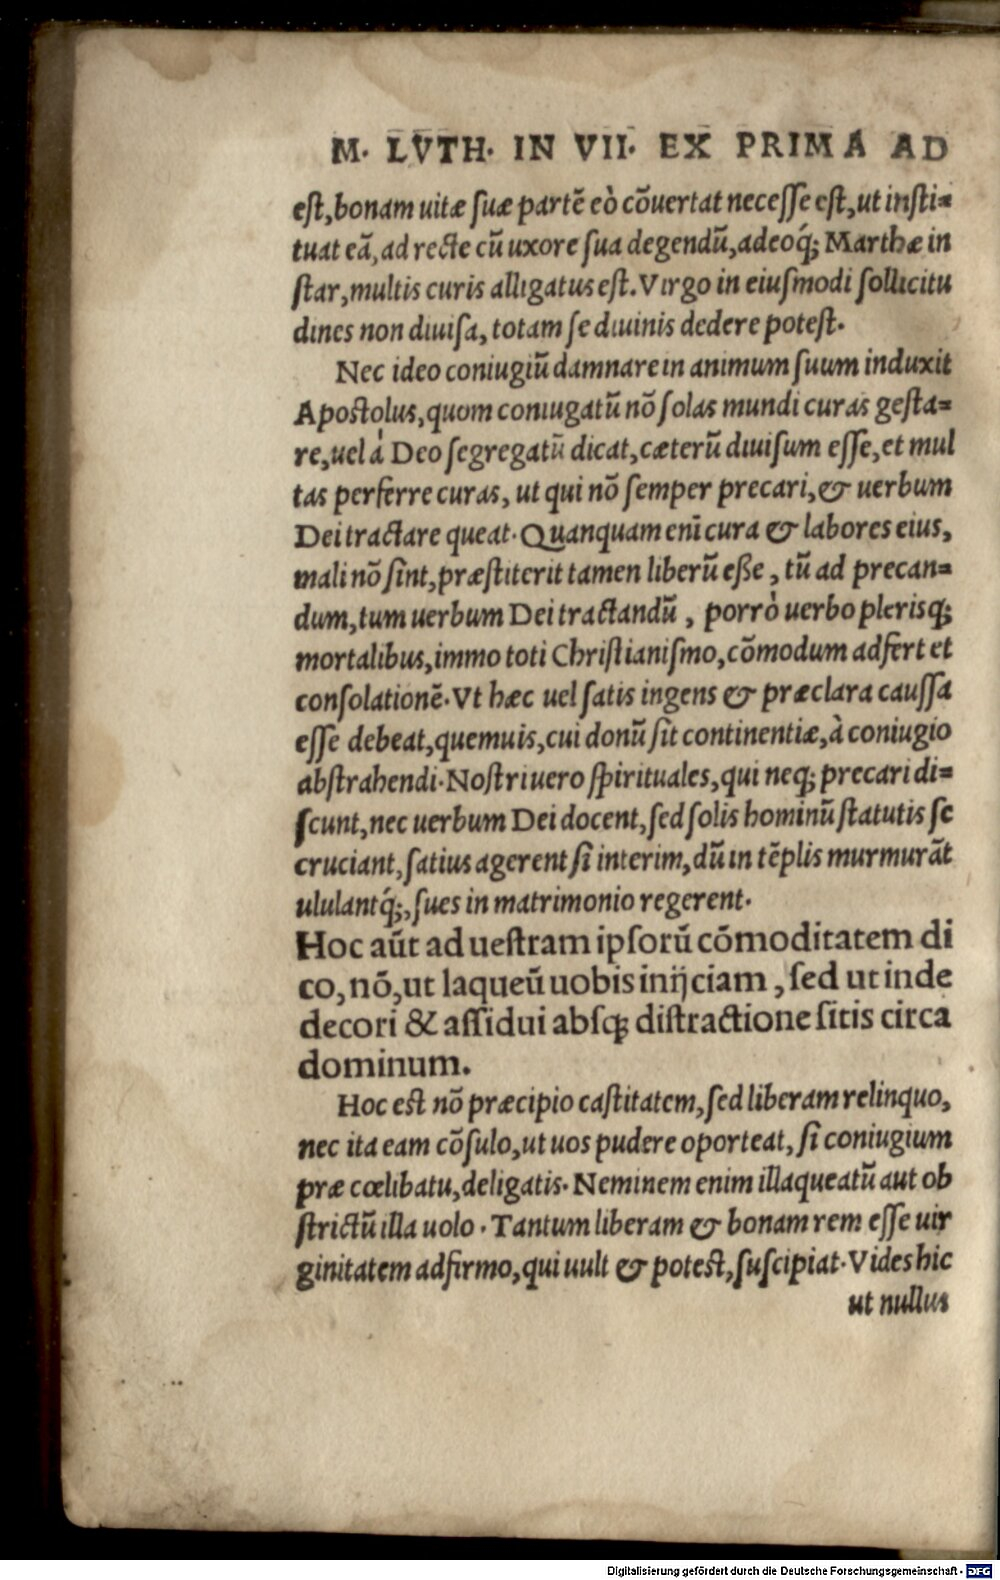 M. LVTH. IN VII. EX PRIMA AD
eſt, bonam uitæ ſuæ partē eò cōuertat neceſſe eſt, ut inſti=
tuat eā, ad recte cū uxore ſua degendū, adeoq́; Marthæ in
ſtar, multis curis alligatus eſt. Virgo in eiuſmodi ſollicitu
dines non diuiſa, totam ſe diuinis dedere poteſt.
Nec ideo coniugiū damnare in animum ſuum induxit
Apoſtolus, quom coniugatū nō ſolas mundi curas geſta=
re, uel à Deo ſegregatū dicat, cæterū diuiſum eſſe, et mul
tas perferre curas, ut qui nō ſemper precari, & uerbum
Dei tractare queat. Quanquam enī cura & labores eius,
mali nō ſint, præſtiterit tamen liberū eße, tū ad precan=
dum, tum uerbum Dei tractandū, porrò uerbo plerisq;
mortalibus, immo toti Chriſtianiſmo, cōmodum adfert et
conſolationē. Vt hæc uel ſatis ingens & præclara cauſſa
eſſe debeat, quemuis, cui donū ſit continentiæ, à coniugio
abſtrahendi. Noſtri uero ſpirituales, qui neq; precari di=
ſcunt, nec uerbum Dei docent, ſed ſolis hominū ſtatutis ſe
cruciant, ſatius agerent ſi interim, dū in tēplis murmurāt
ululantq́;, ſues in matrimonio regerent.
Hoc aūt ad ueſtram ipſorū cōmoditatem di
co, nō, ut laqueū uobis inijciam, ſed ut inde
decori & aſſidui abſq; diſtractione ſitis circa
dominum.
Hoc eſt nō præcipio caſtitatem, ſed liberam relinquo,
nec ita eam cōſulo, ut uos pudere oporteat, ſi coniugium
præ cœlibatu, deligatis. Neminem enim illaqueatū aut ob
ſtrictū illa uolo. Tantum liberam & bonam rem eſſe uir
ginitatem adfirmo, qui uult & poteſt, ſuſcipiat. Vides hic
ut nullus
Digitalisierung gefördert durch die Deutsche Forschungsgemeinschaft - DFG